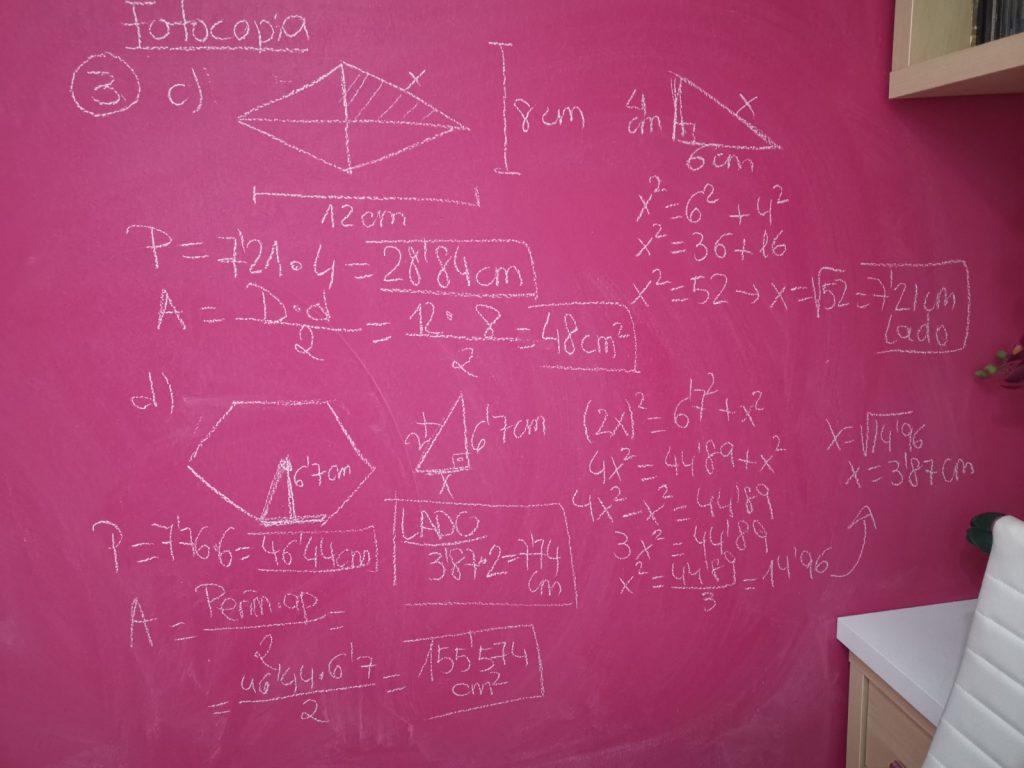 Fotocopia
3 c)
x
8 cm
12 cm
4 cm
x
6 cm
x² = 6² + 4²
x² = 36 + 16
x² = 52 → x = √52 = 7'21 cm
lado
P = 7'21 · 4 = 28'84 cm
A = D·d / 2 = 12 · 8 / 2 = 48 cm²
d)
6'7 cm
2x
6'7 cm
x
(2x)² = 6'7² + x²
4x² = 44'89 + x²
4x² - x² = 44'89
3x² = 44'89
x² = 44'89 / 3 = 14'96
x = √14'96
x = 3'87 cm
LADO
3'87·2 = 7'74
cm
= 46'44 cm
A = Perim·ap / 2 =
= 46'44 · 6'7 / 2 = 155'574
cm²